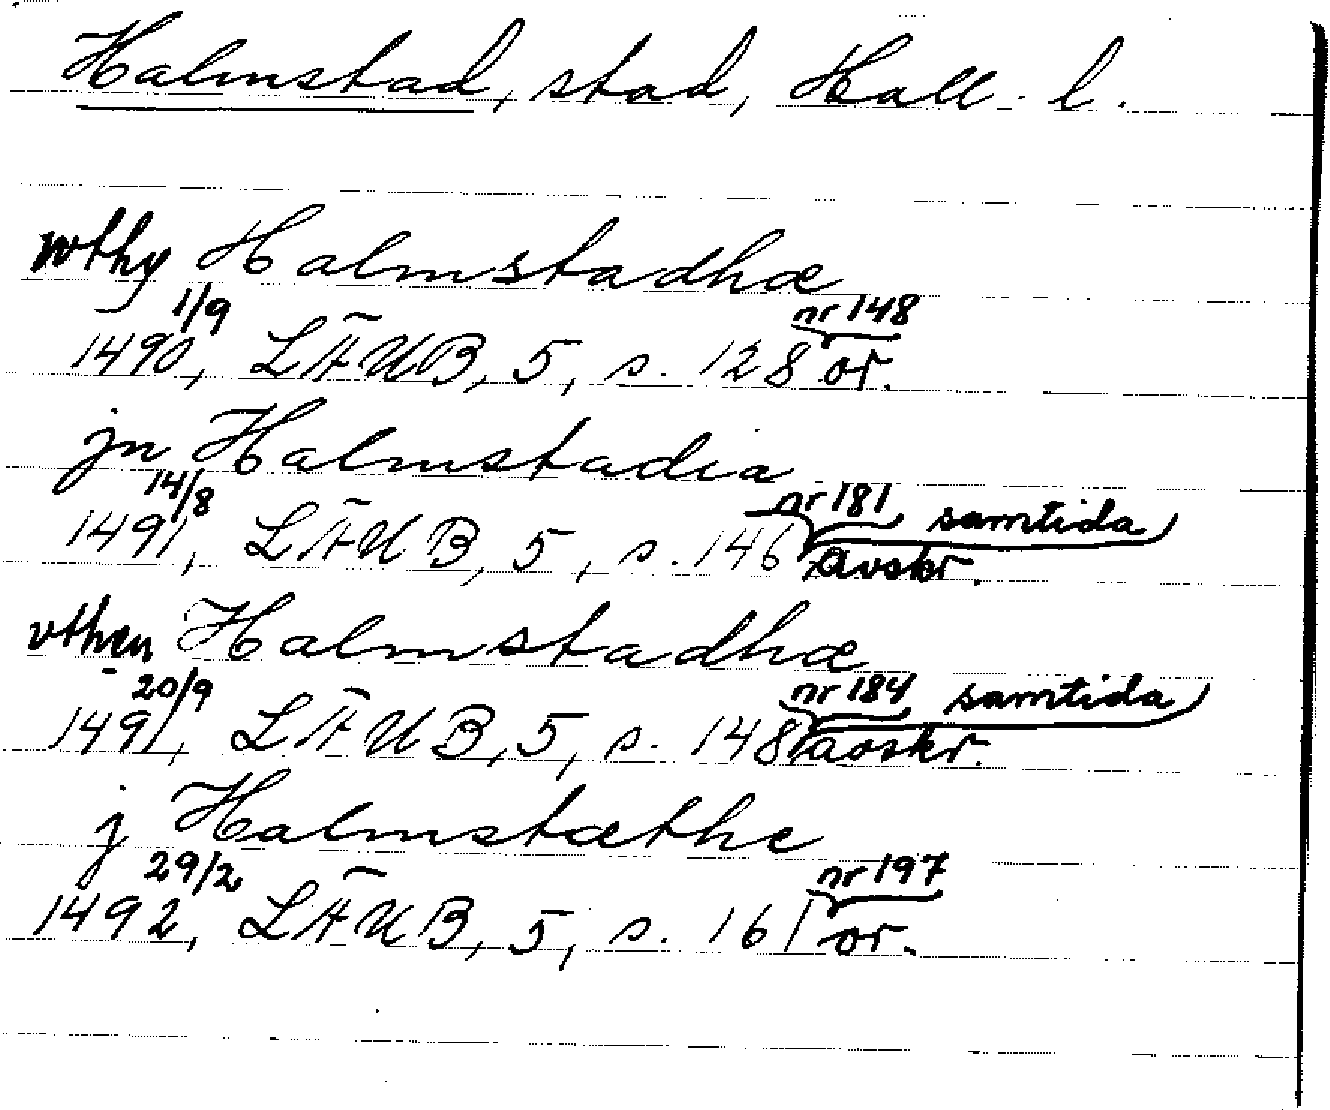 Halmstad, stad, Hall. l.
wthy Halmstadhæ
1490 1/9, LÄUB, 5, s. 128 nr 148 or.
jn Halmstadia
1491 14/8, LÄUB, 5, s. 146 nr 181 samtida avskr.
vthen Halmstadhæ
1491 20/9, LÄUB, 5, s. 148 nr 184 samtida avskr.
j Halmstæthe
1492 29/2, LÄUB, 5, s. 161 nr 197 or.